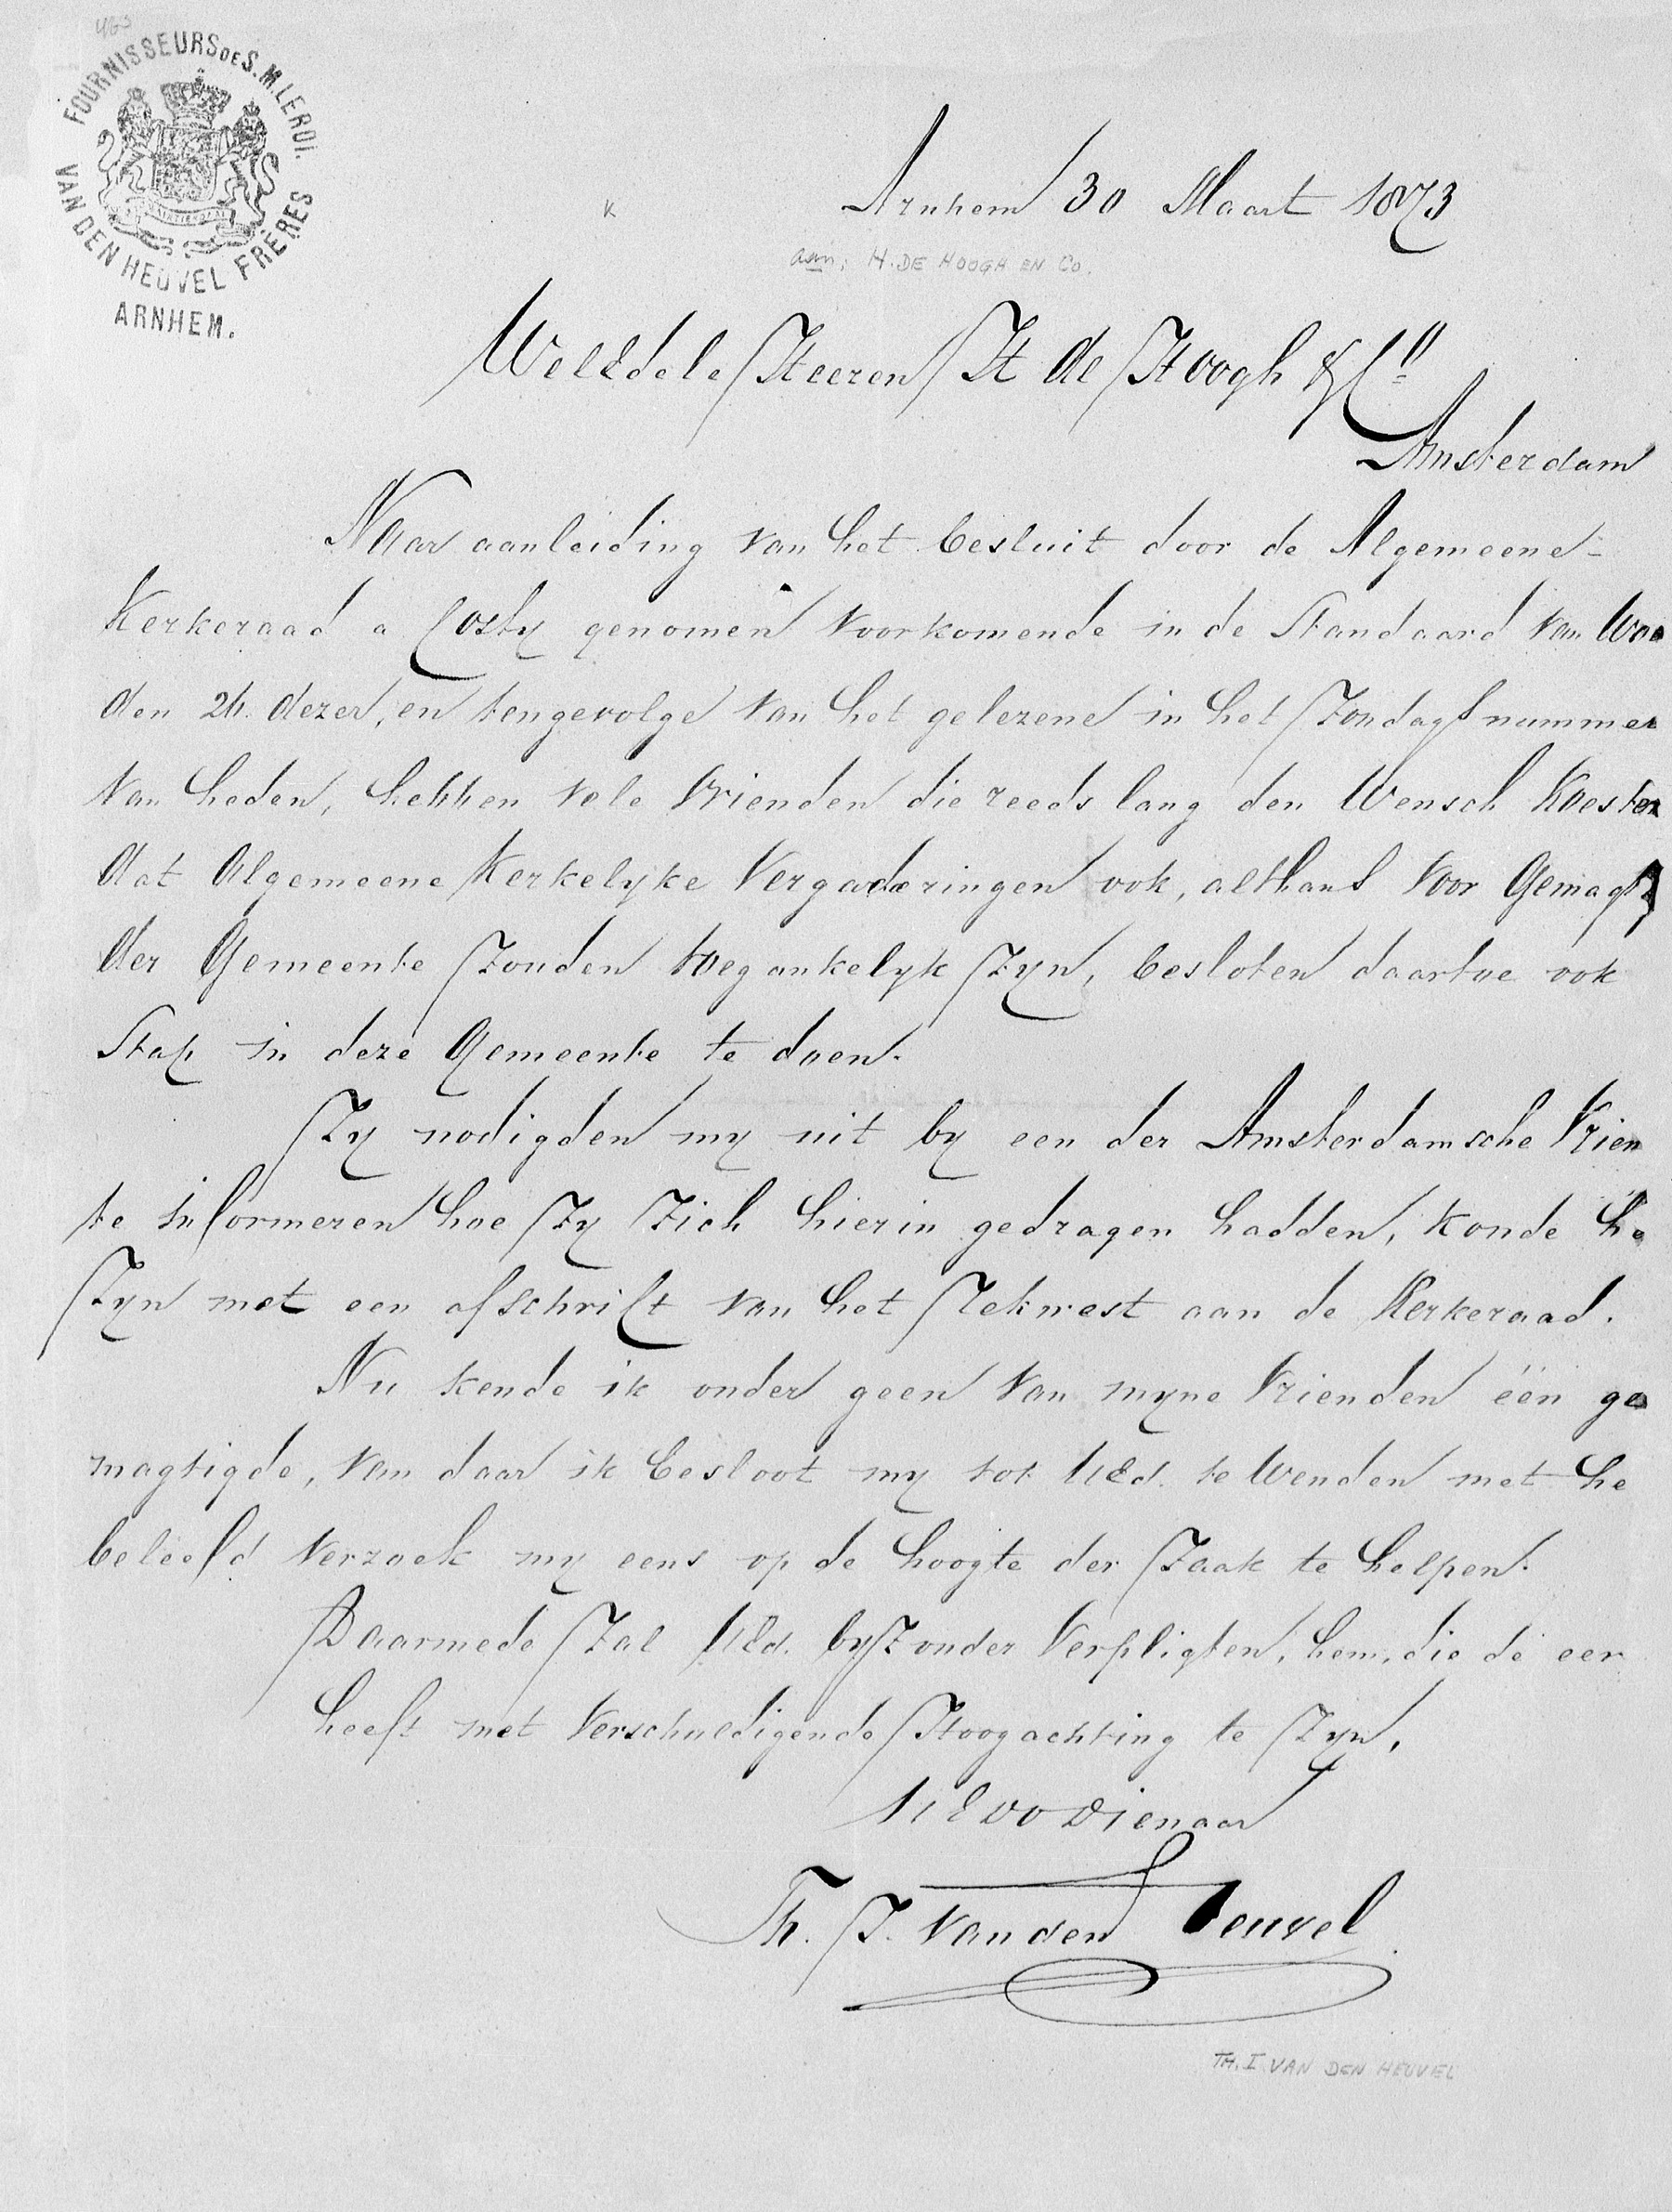 463
FOURNISSEURS DE S.M. LE ROI.
VAN DEN HEUVEL FRÈRES
ARNHEM.
K
Arnhem 30 Maart 1873
aan: H. DE HOOGH EN Co.
WelEdele Heeren H de Hoogh & Co
Amsterdam
Naar aanleiding van het besluit door de Algemeene-
Kerkeraad a Costy genomen voorkomende in de Standaard van Woe
den 26. dezer, en tengevolge van het gelezene in het Zondagsnummer
van heden, hebben vele Vrienden die reeds lang den Wensch Koester
dat Algemeene Kerkelyke Vergaderingen ook, althans voor Gemagt
der Gemeente Zouden toegankelyk Zyn, besloten daartoe ook
Stap in deze Gemeente te doen.
Zy nodigden my uit by een der Amsterdamsche Vrien
te informeren hoe Zy Zich hierin gedragen hadden, konde he
Zyn met een afschrift van het Rekwest aan de Kerkeraad.
Nu kende ik onder geen van myne Vrienden één ge
magtigde, van daar ik besloot my tot UEd. te Wenden met he
beleefd Verzoek my eens op de hoogte der Zaak te helpen.
Daarmede Zal UEd. byZonder Verpligten, hem, die de eer
heeft met Verschuldigende Hoogachting te Zyn,
UEDVDienaar
Th. J. van den Heuvel
TH. I VAN DEN HEUVEL